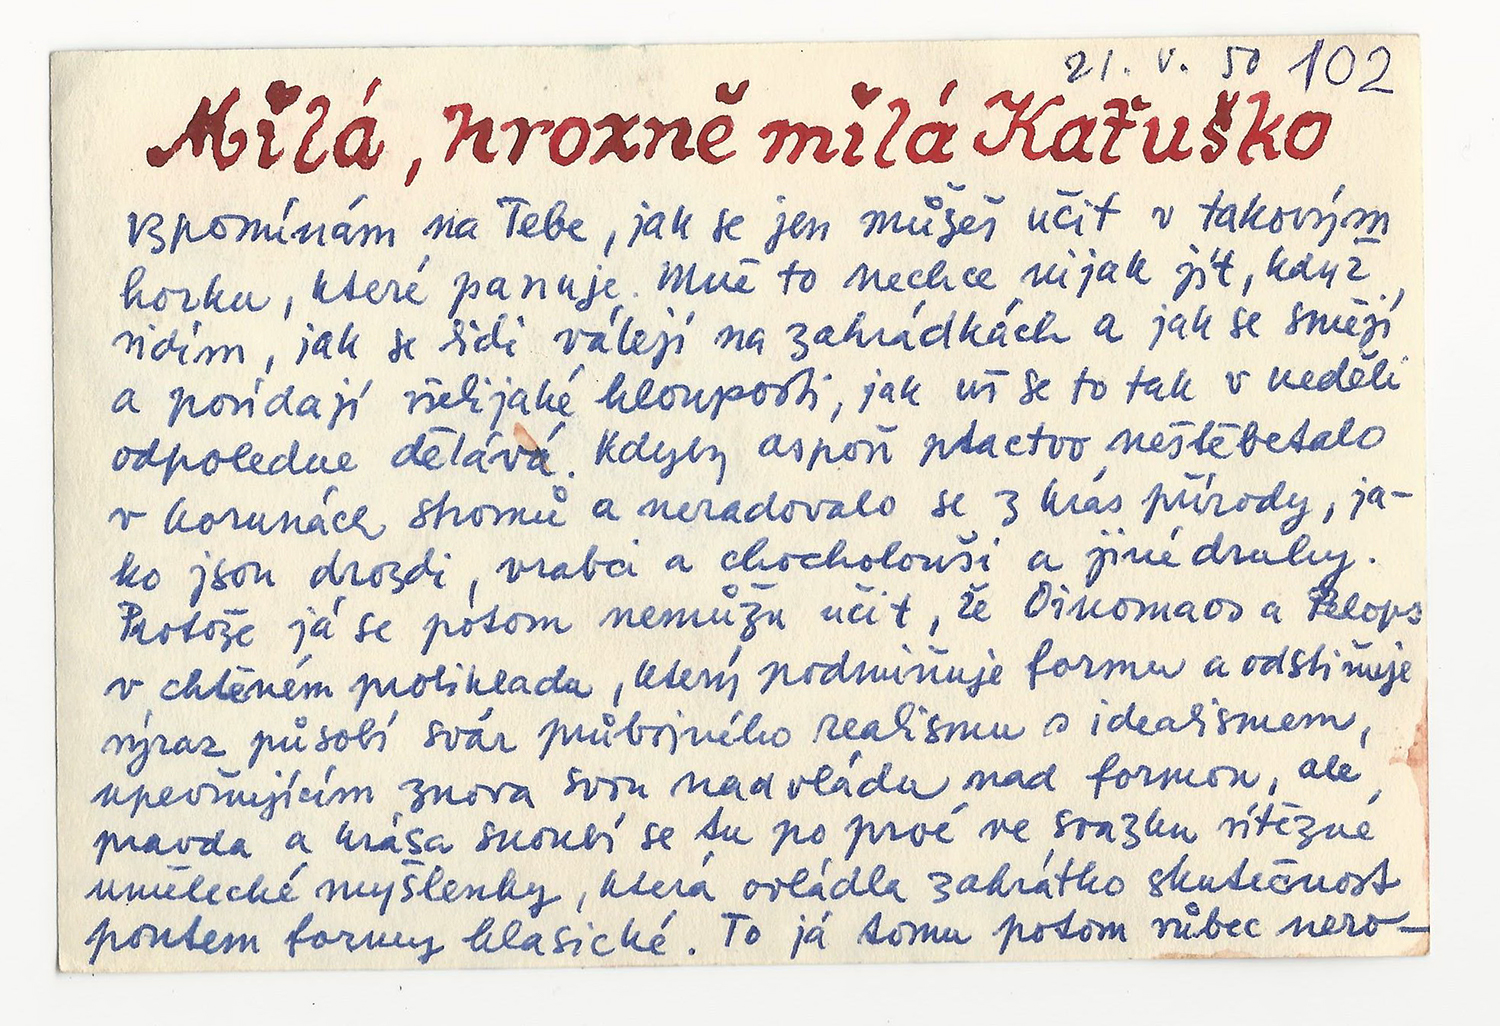 21. V. 50 102
Milá, hrozně milá Kaťuško
vzpomínám na Tebe, jak se jen můžeš učit v takovým
horku, které panuje. Mně to nechce nijak jít, když
vidím, jak se lidi válejí na zahrádkách a jak se smějí
a povídají všelijaké hlouposti, jak už se to tak v neděli
odpoledne dělává. Kdyby aspoň ptactvo neštěbetalo
v korunách stromů a neradovalo se z krás přírody, ja-
ko jsou drozdi, vrabci a chocholouši a jiné druhy.
Protože já se potom nemůžu učit, že Oinomaos a Pelops
v chtěném protikladu, který podmiňuje formu a odstiňuje
výraz působí svár průbojného realismu s idealismem,
upevňujícím znova svou nadvládu nad formou, ale,
pravda a krása snoubí se tu po prvé ve svazku vítězné
umělecké myšlenky, která ovládla zakrátko skutečnost
poutem formy klasické. To já tomu potom vůbec nero-